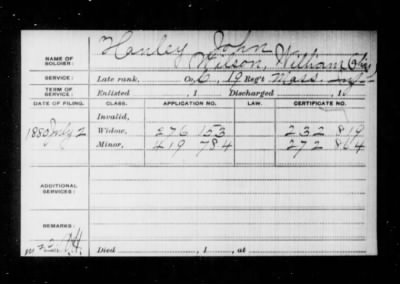 Hanley John
NAME OF SOLDIER: Wilson, William (Alias)
SERVICE: Late rank, Co. C, 19 Reg't Mass. Inf.
TERM OF SERVICE: Enlisted , 1 Discharged , 1
DATE OF FILING. CLASS. APPLICATION NO. LAW. CERTIFICATE NO.
Invalid,
1880 July 2 Widow, 276 153 232 819
Minor, 419 784 272 864
ADDITIONAL SERVICES:
REMARKS:
Died , 1 , at